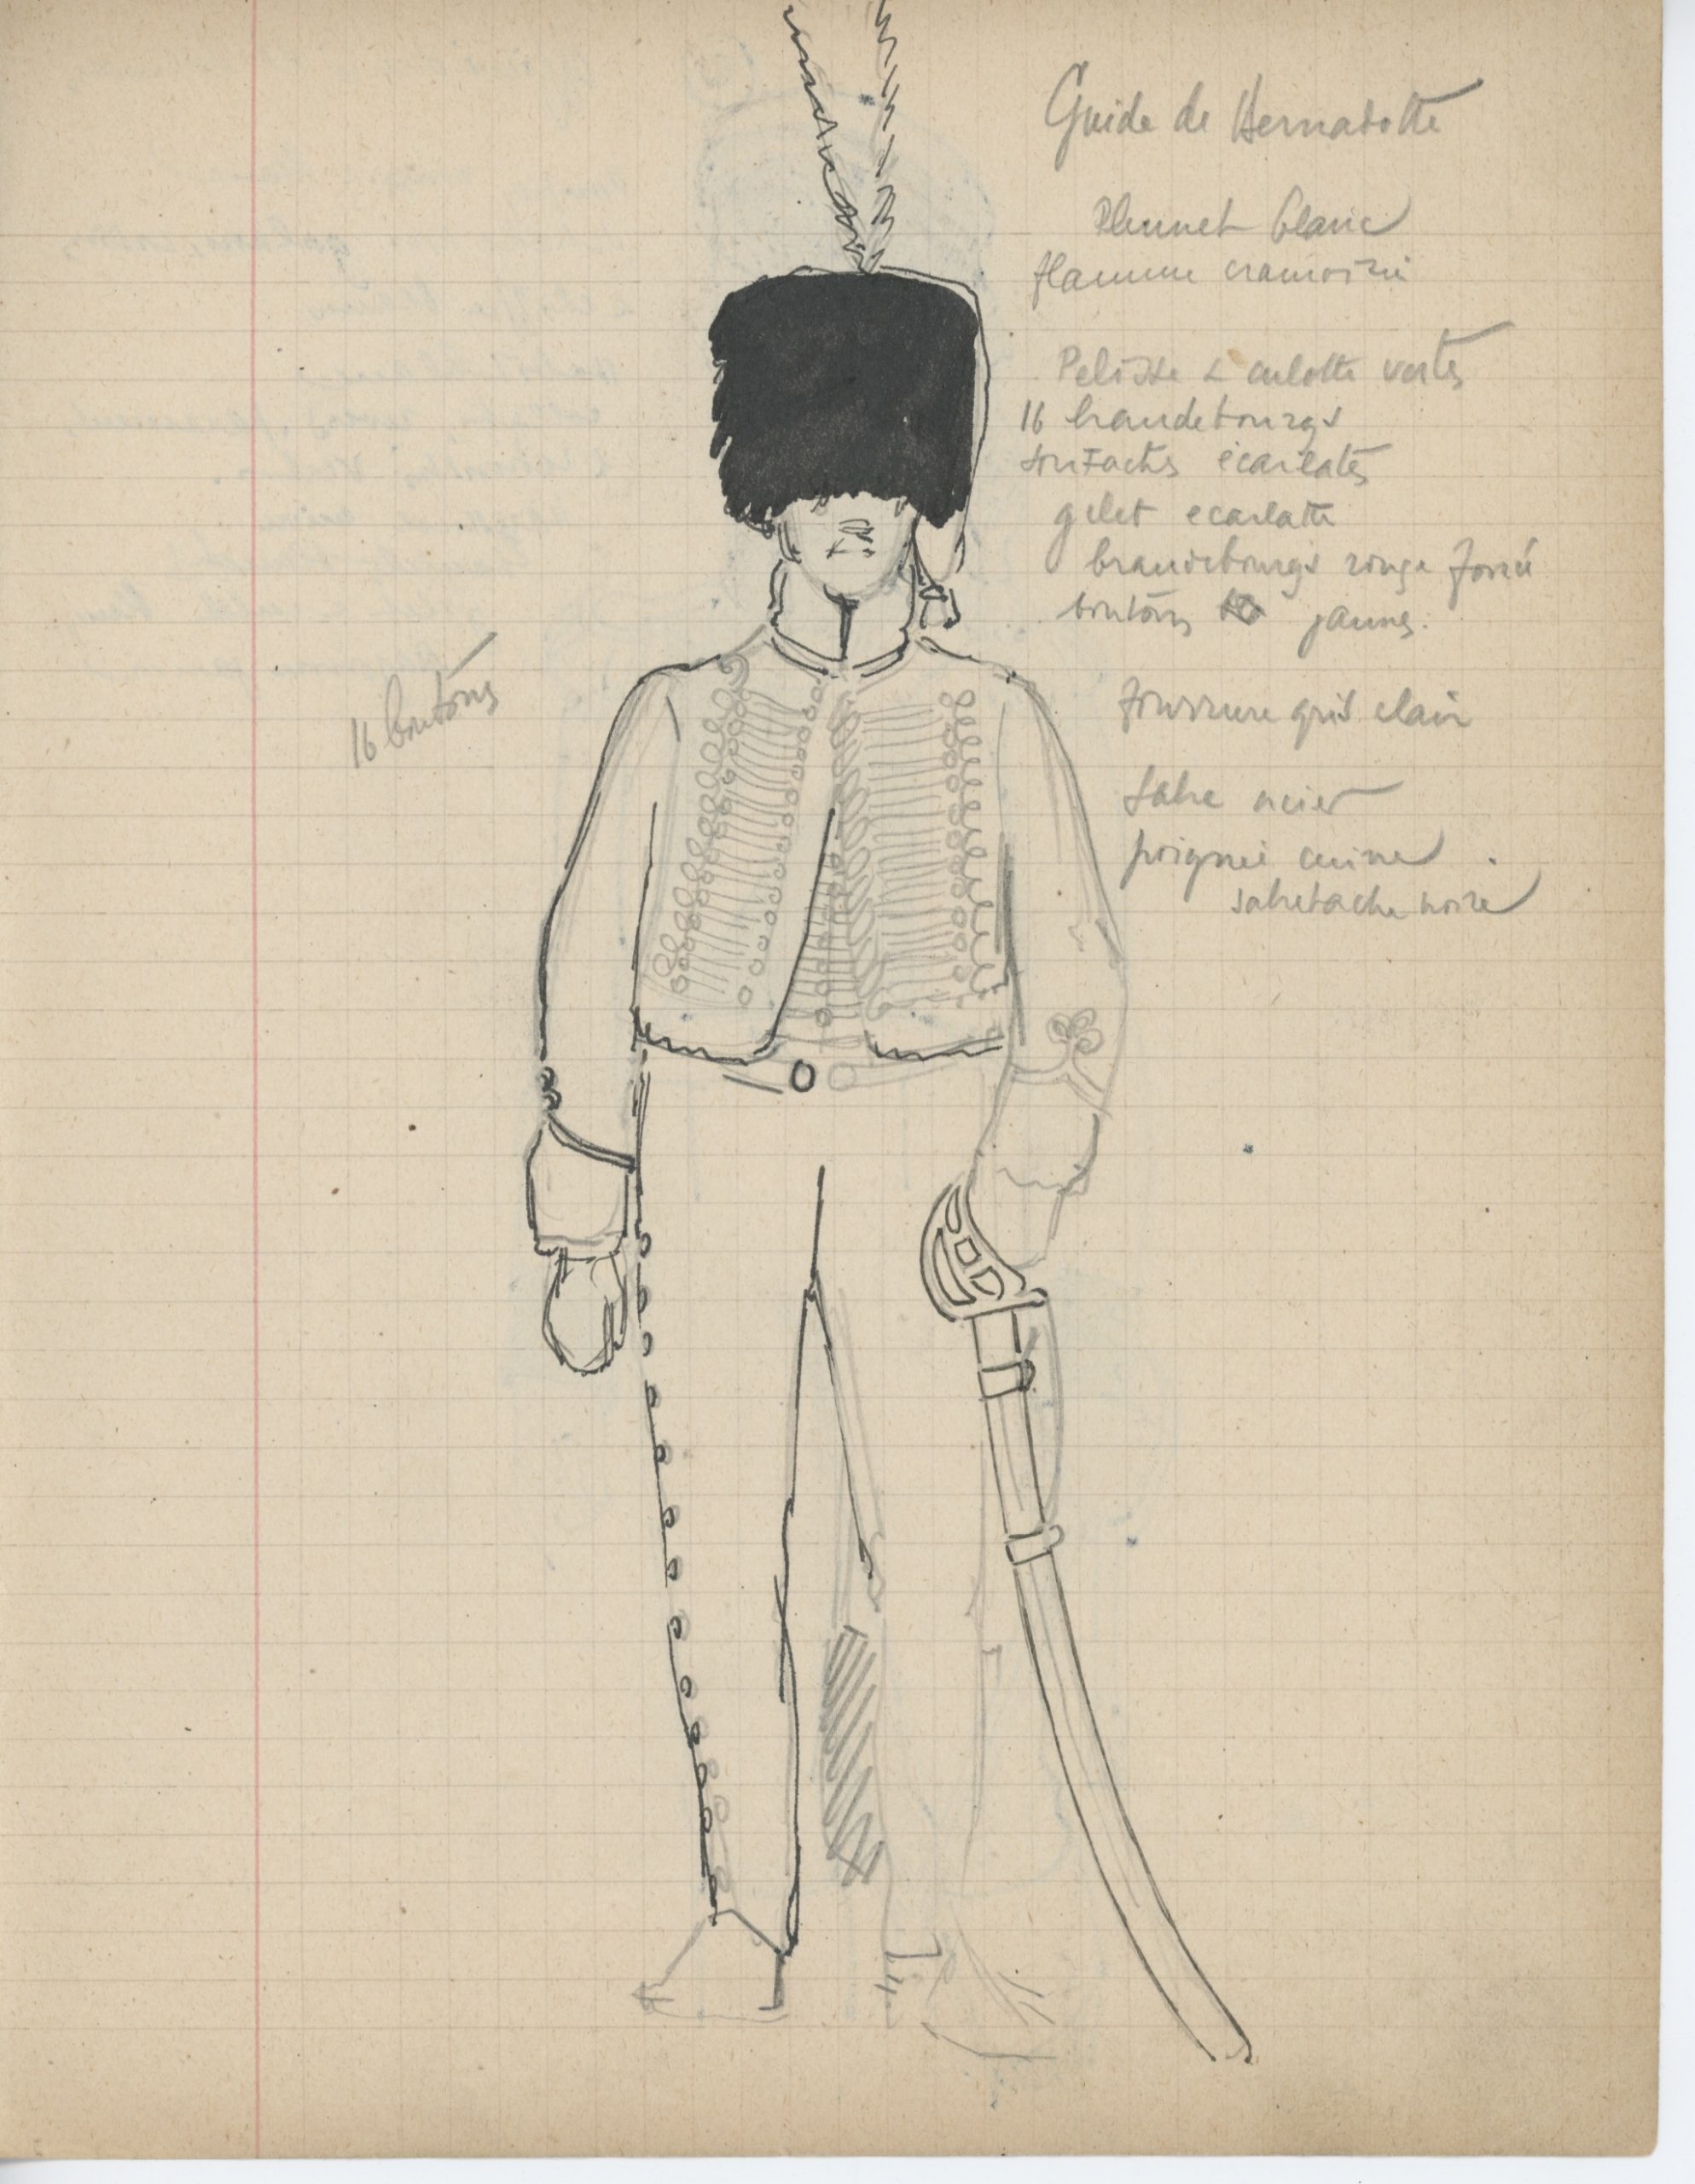 Guide de Bernadotte
Plumet blanc
flamme cramoisie
Pelisse & culotte vertes
16 brandebourgs
soutaches écarlates
gilet ecarlate
brandebourgs rouge foncé
boutons jaunes.
16 boutons
Fourrure gris clair
Sabre acier
poignée cuivre
sabretache noire